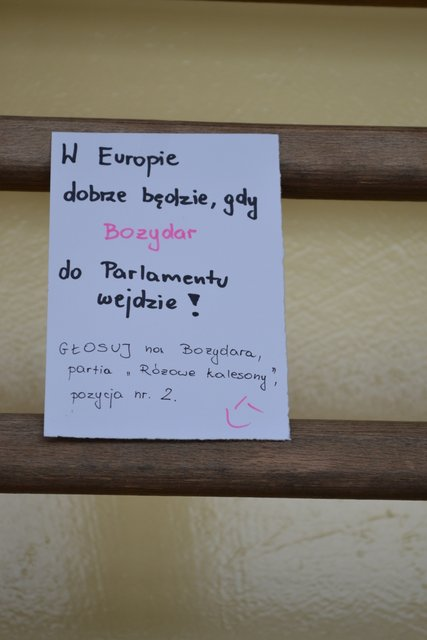 W Europie
dobrze będzie, gdy
Bozydar
do Parlamentu
wejdzie!
GŁOSUJ na Bozydara,
partia „Różowe kalesony”,
pozycja nr. 2.